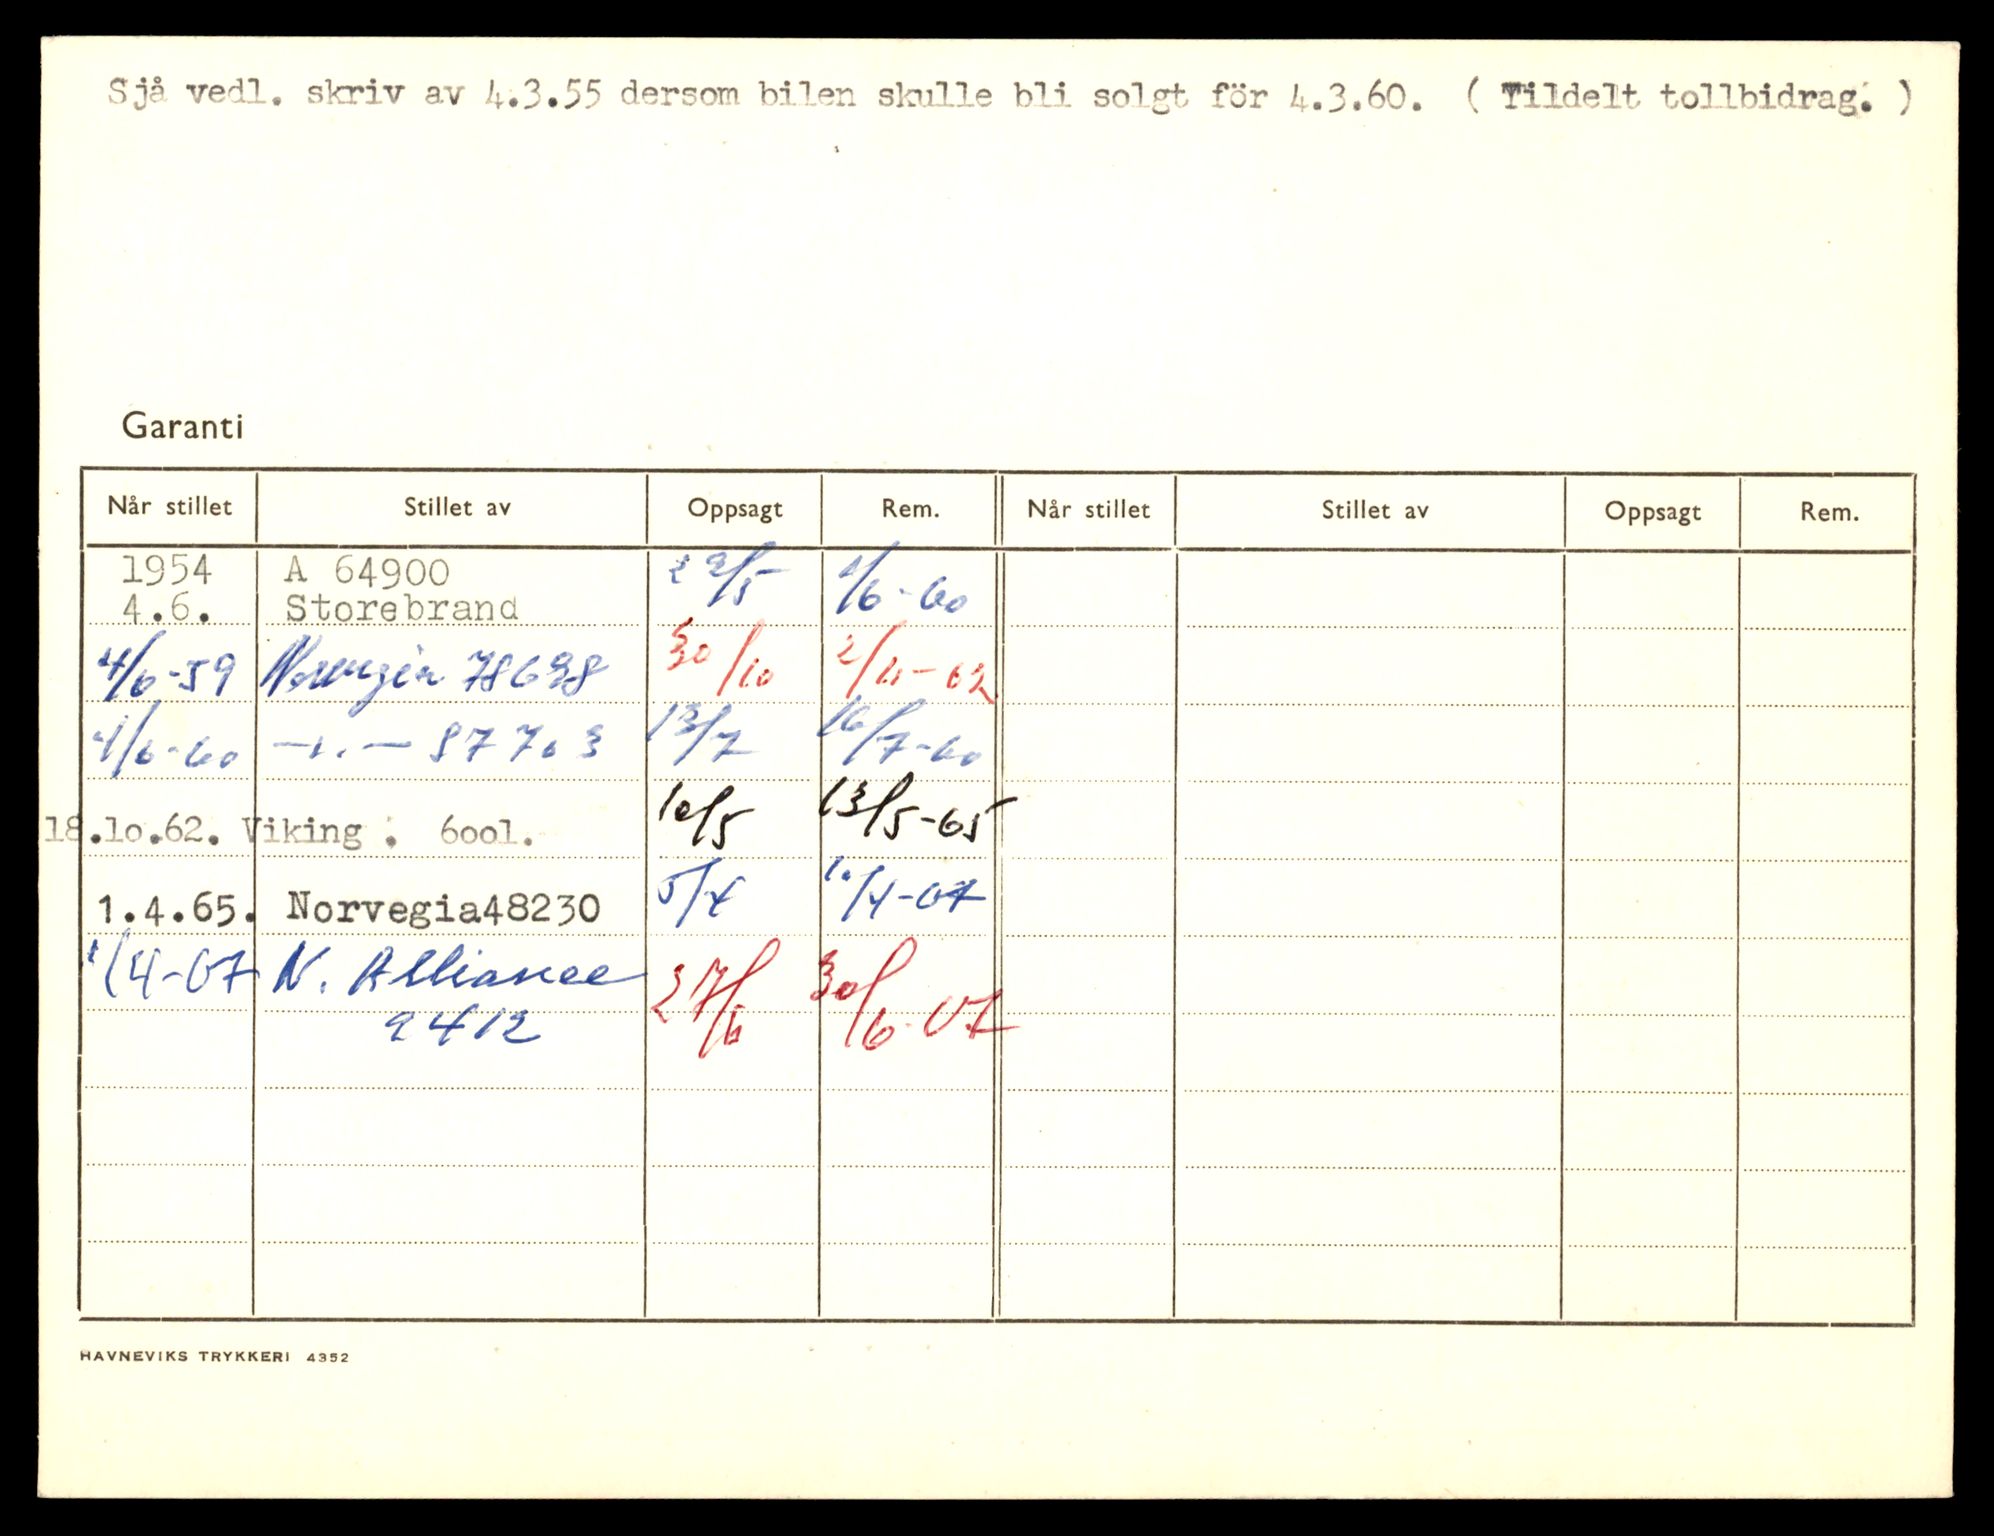 Sjå vedl. skriv av 4.3.55 dersom bilen skulle bli solgt för 4.3.60. ( Tildelt tollbidrag. )
Garanti
Når stillet Stillet av Oppsagt Rem. Når stillet Stillet av Oppsagt Rem.
1954 A 64900 22/5 1/6-60
4.6. Storebrand
4/6-59 Norvegia 78698 30/10 2/11-62
4/6-60 —"— 87703 13/7 16/7-60
18.10.62. Viking . 6001. 10/5 13/5-65
1.4.65. Norvegia48230 5/4 10/4-67
1/4-67 N. Alliance 27/6 30/6-67
9412
HAVNEVIKS TRYKKERI 4352